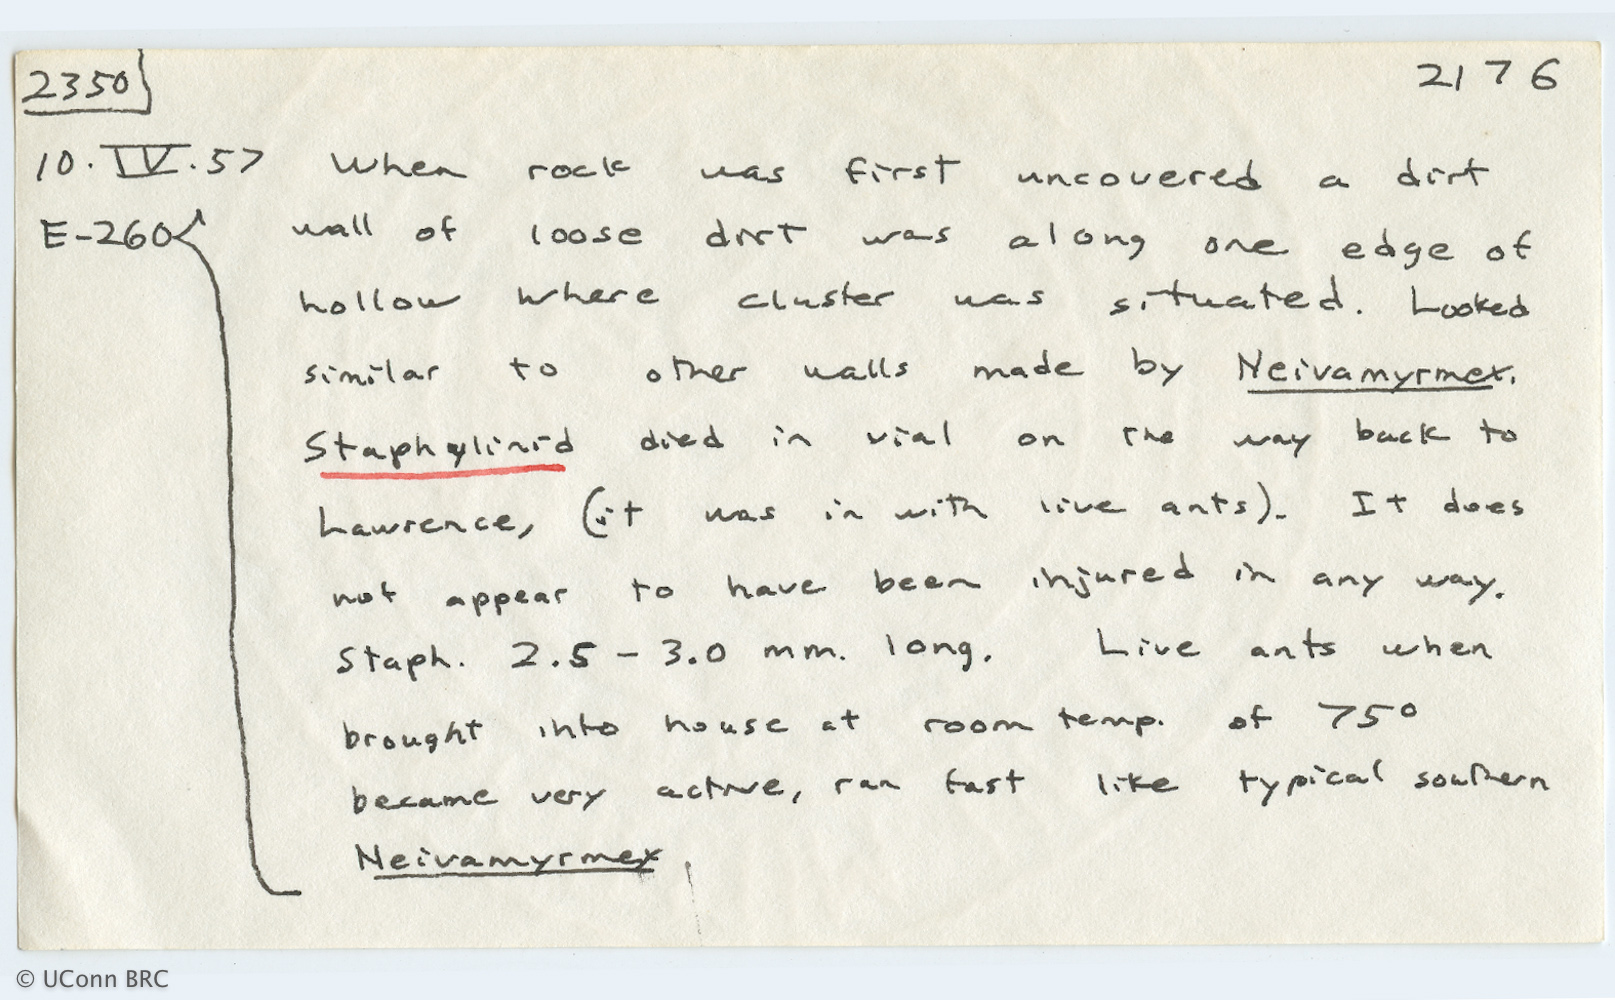 2350 2176
10.IV.57 When rock was first uncovered a dirt
E-260 wall of loose dirt was along one edge of
hollow where cluster was situated. Looked
similar to other walls made by Neivamyrmex.
Staphylinid died in vial on the way back to
Lawrence, (it was in with live ants). It does
not appear to have been injured in any way.
Staph. 2.5 - 3.0 mm. long. Live ants when
brought into house at room temp. of 75°
became very active, ran fast like typical southern
Neivamyrmex.
© UConn BRC